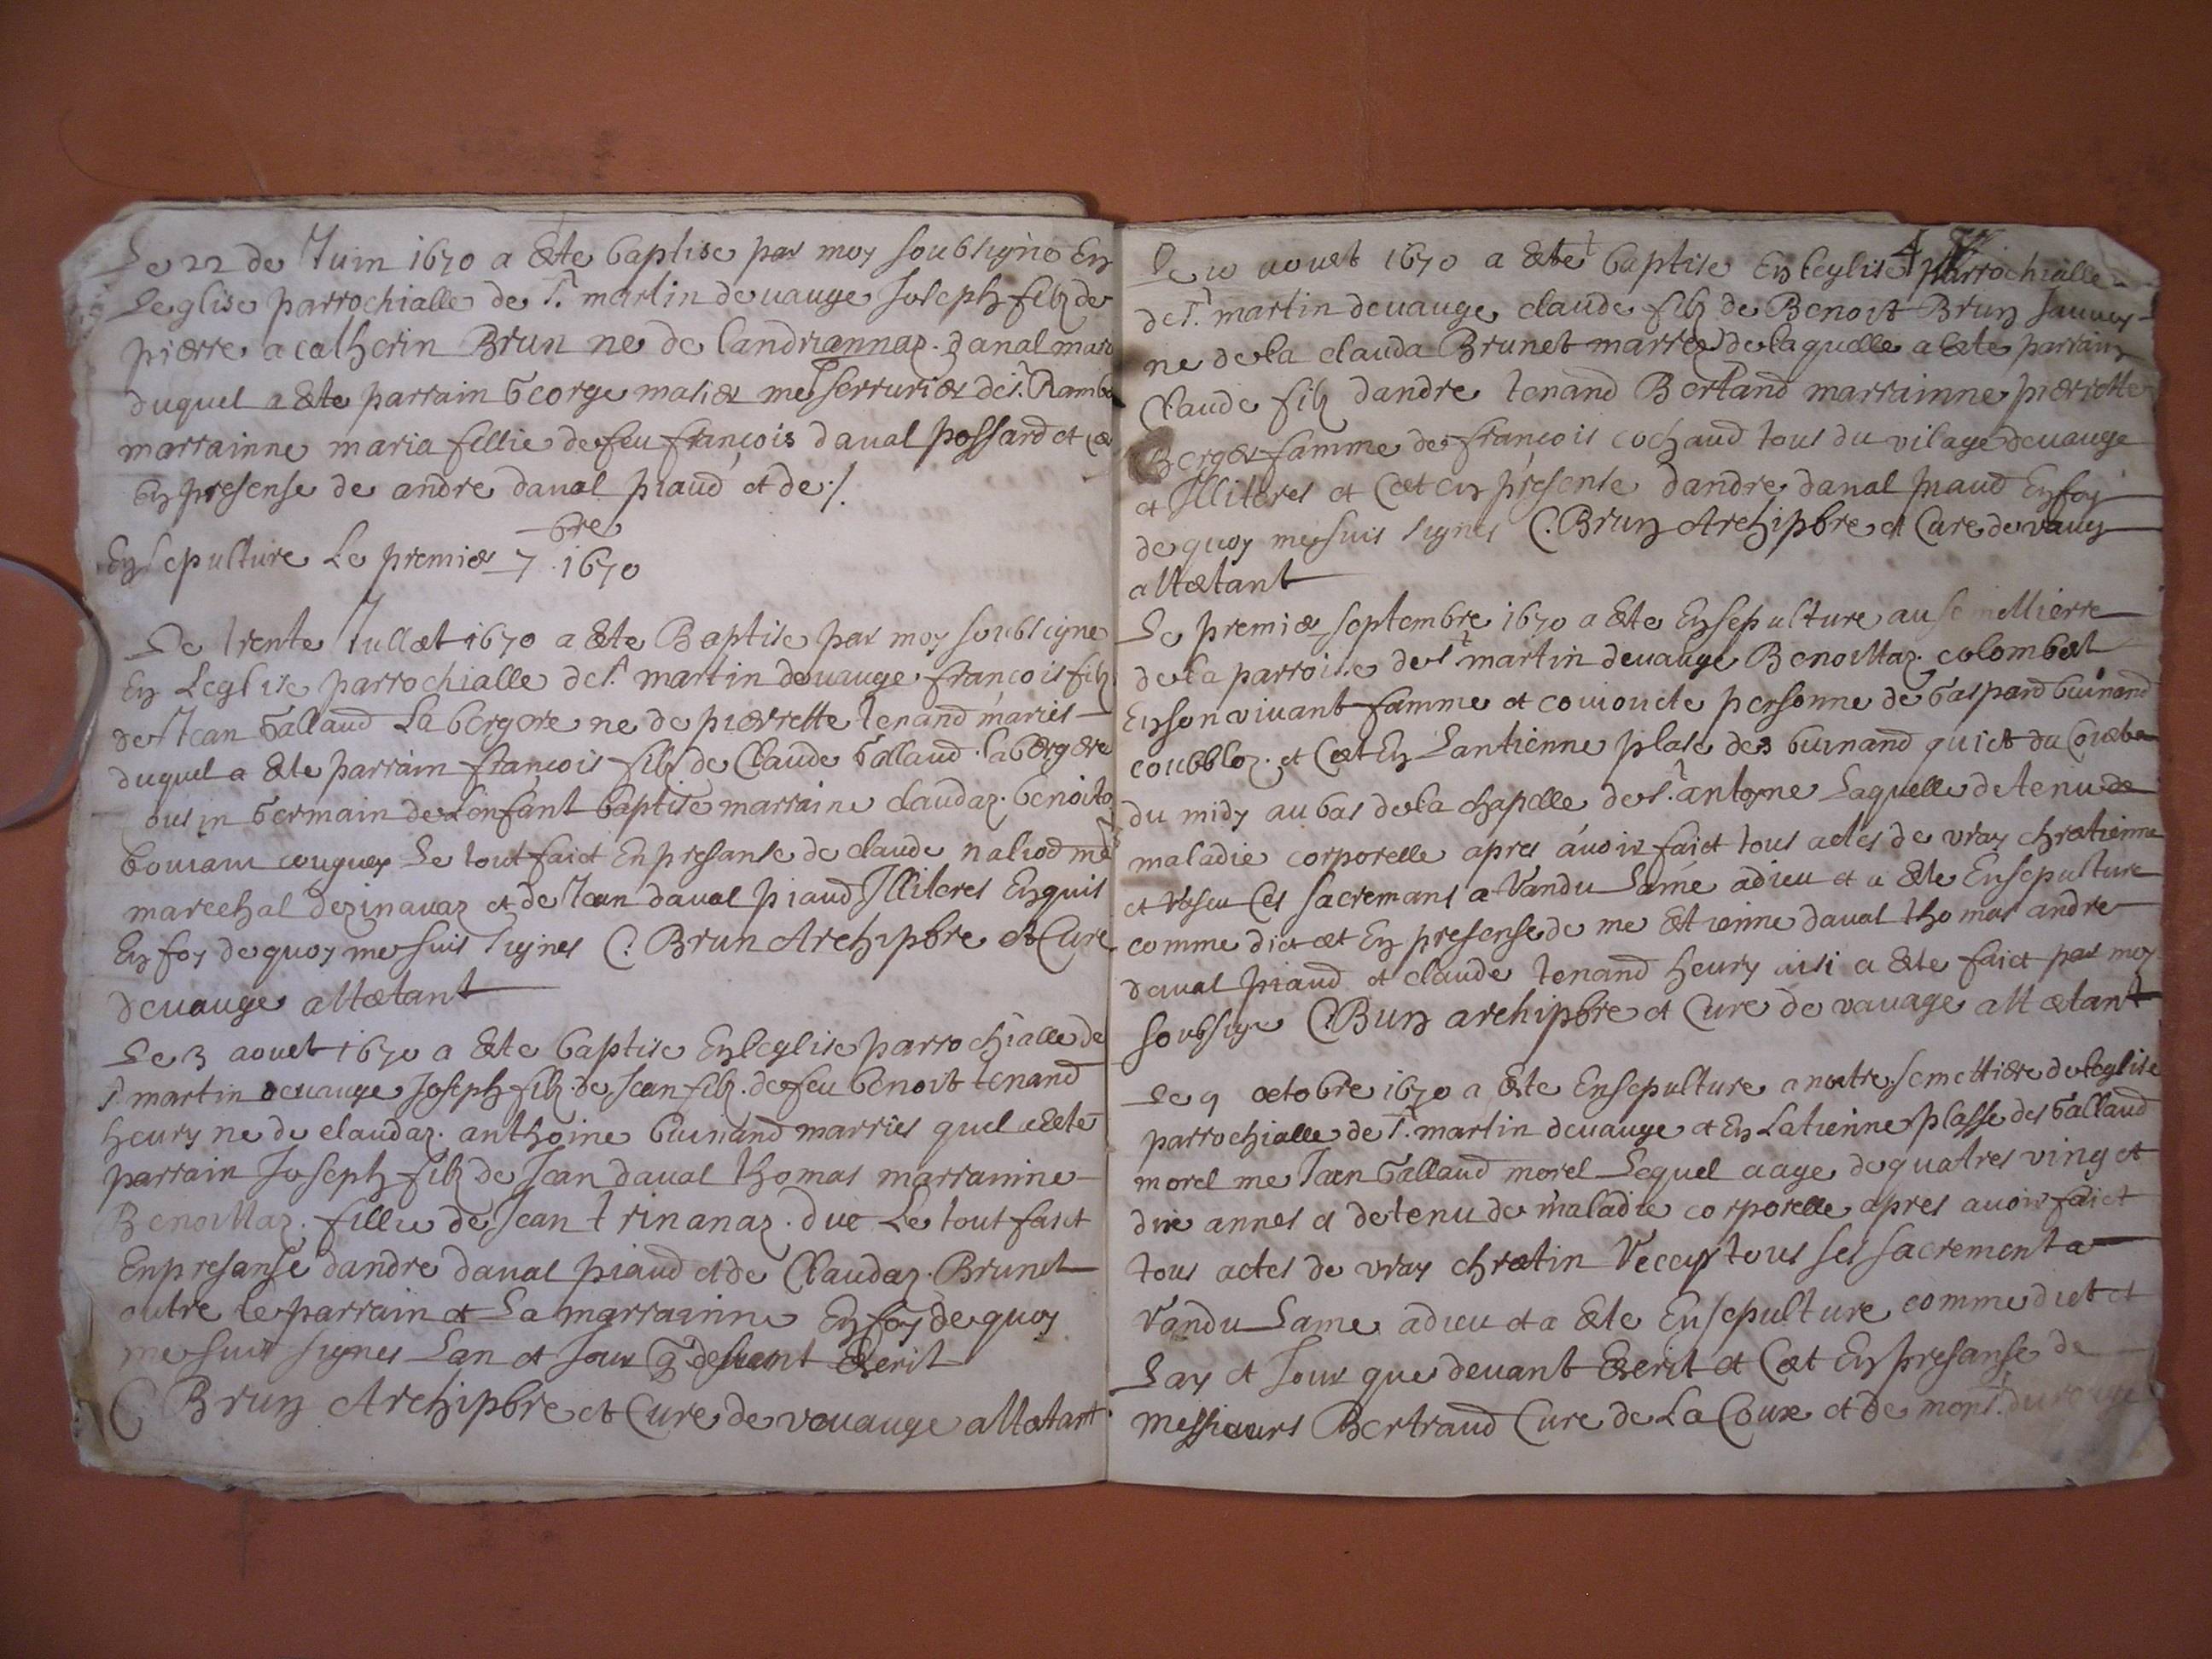 Le 22 de Juin 1670 a Ete baptise par moy soubsigne En
Leglise parrochialle de St. martin devauge Joseph filz de
pierre a catherin Brun ne de landriannaz danal mar
duquel a Ete parrain George masier me serrurier de St. Ramb
marrainne maria fillie de feu françois daval possard et ce
En presense de andre daval piaud et de ./.
Ensepulture Le premier 7bre 1670
Le trente Jullet 1670 a Ete Baptise par moy soubsigne
En Leglise parrochialle de St. martin devauge françois filz
de Jean Galland La bergere ne de pierrette tenand maries
duquel a Ete parrain françois filz de Claude Galland la bergere
ousin Germain de Lenfant baptise marraine claudaz benoito
le tout faict En presanse de claude naliod me
marechal dezinavaz et de Jean daval piaud Illiteres Enquis
En foy de quoy me suis signes C. Brun Archipbre et Cure
devauge attetant
Le 3 aouet 1670 a Ete baptise En leglise parrochialle de
St martin devauge Joseph filz de Jean filz de feu benoit tenand
heury ne de claudaz anthoine Guinand marries quel a Ete
parrain Joseph filz de Jean daval thomas marrainne
Benoittaz fillie de Jean trinanaz due Le tout faict
En presanse dandre daval piaud et de Claudaz Brunet
outre le parrain et La marrainne En foy de quoy
me suis signes Lan et Jour q. devant Escrit
C Brun Archipbre et Cure de vauauge attetant
4
Le 10 aouet 1670 a Ete baptise En leglise parrochialle
de St. martin devauge claude filz de Benoit Brun Januey
ne de la clauda Brunet marrez de laquelle a Ete parrain
Claude filz dandre tenand Bertand marrainne pierrette
Berger famme de françois cochaud tous du vilage devauge
et Illiteres et Cet en présense dandre danal piaud En foy
de quoy me suis signes C. Brun Archipbre et Cure de vaug
attetant
Le premier septembre 1670 a Ete Ensepulture au semettierre
de la parroisse de St martin devauge Benoittaz colombet
En son vivant famme et conioucte personne de Gaspard Guinand
coubbloz et Cet En Lantienne plase des Guinand qui et du Coste
du midy au bas de la chapelle de St. antoyne Laquelle detenu de
maladie corporelle apres avoir faict tous actes de vray chretienne
et reseu Ces sacremans a Randu Lame adieu et a Ete Ensepulture
comme dict et En presense de me Etienne daval thomas andre
daval piaud et claude tenand heury aisi a Ete faict par moy
soubsigne C. Brun archipbre et Cure de vauage attetant
Le 9 octobre 1670 a Ete Ensepulture a nostre semettiere de leglise
parrochialle de St. martin devauge et En Latienne plasse des Galland
morel me Jaen Galland morel Lequel aage de quatres ving et
dix annes et detenu de maladie corporelle apres avoir faict
tous actes de vray chretin Reccu tous ses sacrement a
Randu Lame adieu et a Ete Ensepulture comme dict et
Lan et Jour que devant Escrit et Cet En presanse de
Messieurs Bertrand Cure de La Coux et de monsr.